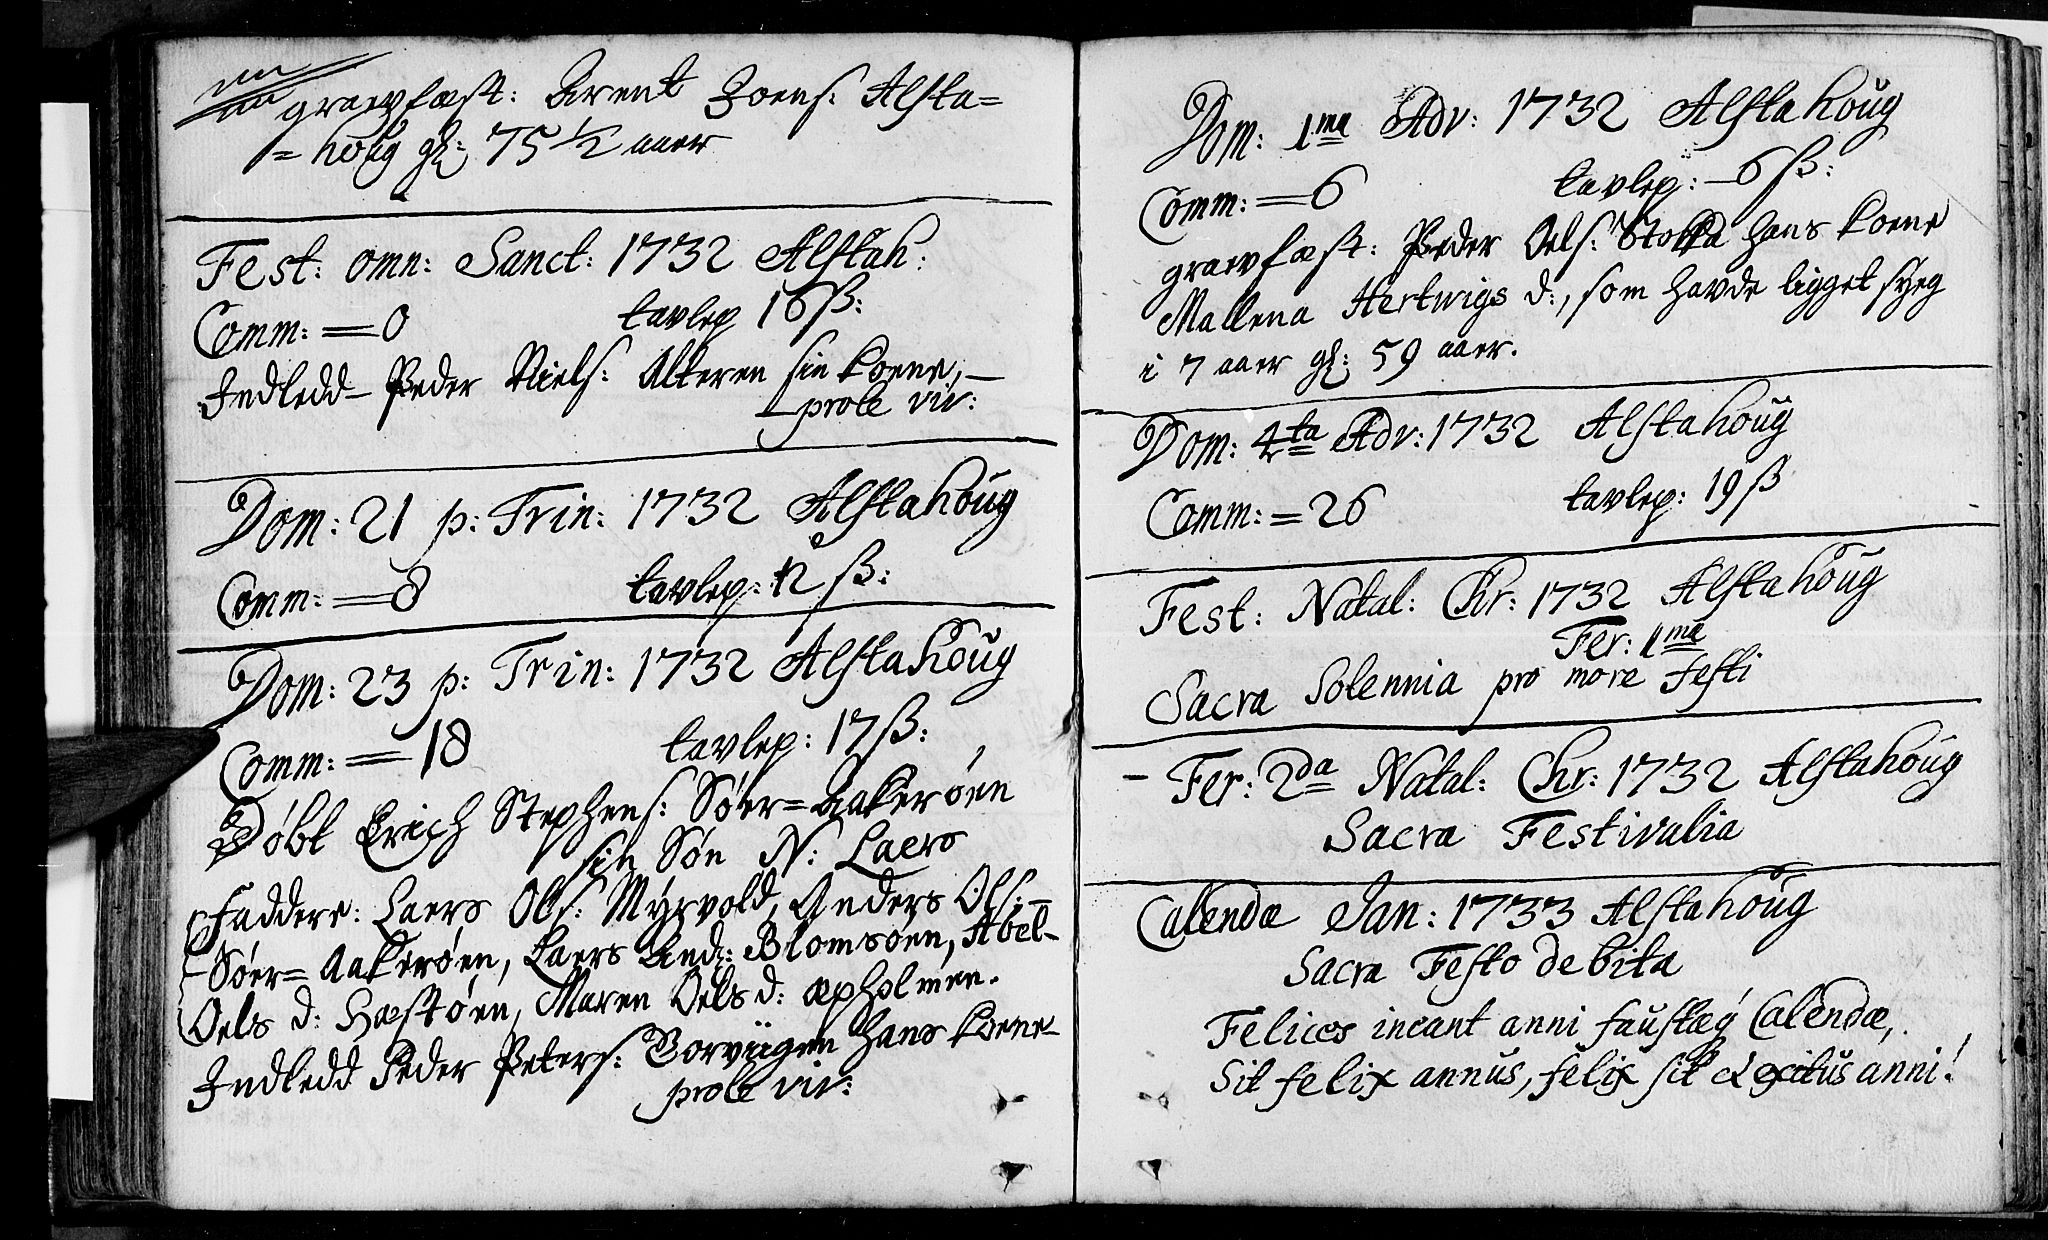 graevfæst: Arent Joens: Alsta=
= houg gl: 75 1/2 aaer
Fest: omn: Sanct: 1732 Alstah:
Comm: = 0 tavlep 16 ß:
Indledd - Peder Niels: Alteren sin koene, -
- prole viv:
Dom: 21 p: Trin: 1732 Alstahoug
Comm: = 8 tavlep: 12 ß:
Dom: 23 p: Trin: 1732 Alstahoug
Comm: = 18 tavlep: 17 ß:
Döbt Erich Stephens: Söer = Aakeröen
sin Sön N: Laers
Faddere: Laers Ols: Myrvold, Anders Ols: =
- Söer = Aakeröen, Laers And: Blomsöen, Abel -
Oels d: Hæstöen, Maren Oels d: æpholmen.
Indledd Peder Peters: hans koene -
prole viv:
Dom: 1ma Adv: 1732 Alstahoug
Comm: = 6 tavlep: - 6 ß:
graevfæst: Peder Oels: Stokka hans koene
Mallena Hertwigs d:, som havde ligget syeg
i 7 aaer gl: 59 aaer.
Dom: 4ta Adv: 1732 Alstahoug
Comm: = 26 tavlep: 19 ß
Fest: Natal: Chr: 1732 Alstahoug
Fer: 1ma
Sacra Solennia pro more festi
- Fer: 2da Natal: Chr: 1732 Alstahoug
Sacra Festivalia
Calendæ Jan: 1733 Alstahoug
Sacra Festo debita
Felices ineant anni faustæq Calendæ,
Sit felix annus, felix sit et exitus anni!